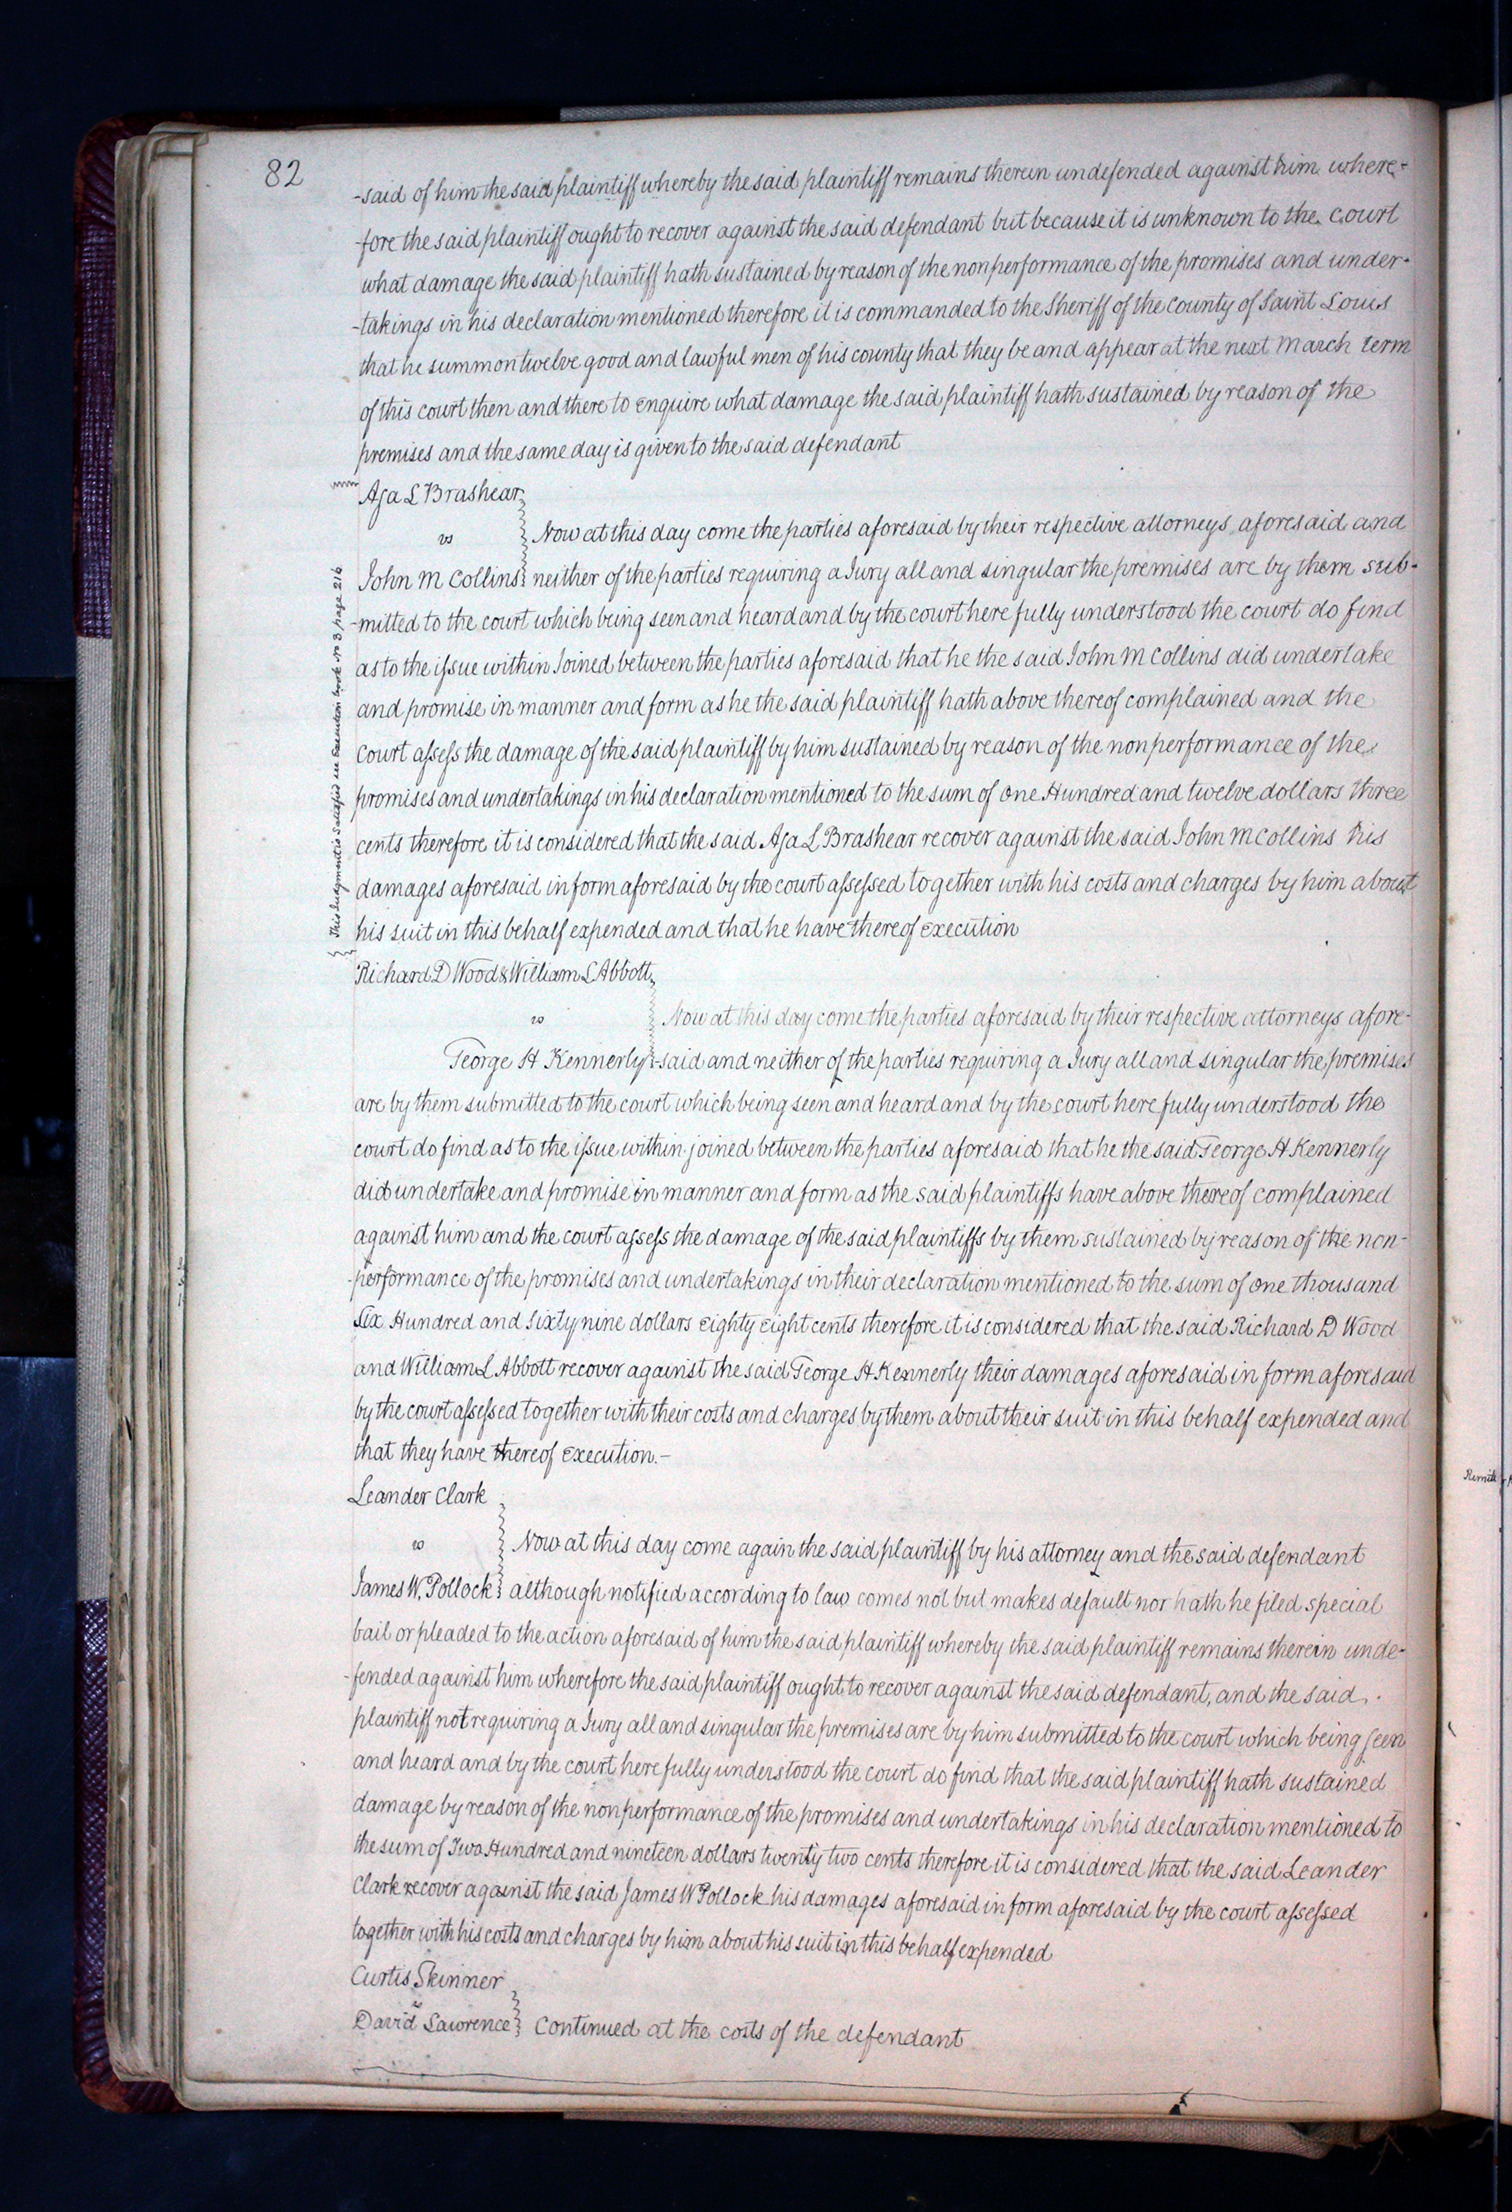 82
-said of him the said plaintiff whereby the said plaintiff remains therein undefended against him where-
-fore the said plaintiff ought to recover against the said defendant but because it is unknown to the court
what damage the said plaintiff hath sustained by reason of the nonperformance of the promises and under-
-takings in his declaration mentioned therefore it is commanded to the Sheriff of the County of Saint Louis
that he summon twelve good and lawful men of his county that they be and appear at the next March term
of this court then and there to enquire what damage the said plaintiff hath sustained by reason of the
premises and the same day is given to the said defendant
Asa L Brashear
vs
Now at this day come the parties aforesaid by their respective attorneys aforesaid and
John M Collins neither of the parties requiring a Jury all and singular the premises are by them sub-
-mitted to the court which being seen and heard and by the court here fully understood the court do find
as to the issue within Joined between the parties aforesaid that he the said John M Collins did undertake
and promise in manner and form as he the said plaintiff hath above thereof complained and the
court assess the damage of the said plaintiff by him sustained by reason of the nonperformance of the
promises and undertakings in his declaration mentioned to the sum of One Hundred and twelve dollars three
cents therefore it is considered that the said Asa L Brashear recover against the said John M Collins his
damages aforesaid in form aforesaid by the court assessed together with his costs and charges by him about
his suit in this behalf expended and that he have thereof execution
This Judgment is satisfied see Execution book No 3 page 216
Richard D Wood & William L Abbott
vs
Now at this day come the parties aforesaid by their respective attorneys afore-
George H Kennerly -said and neither of the parties requiring a Jury all and singular the premises
are by them submitted to the court which being seen and heard and by the court here fully understood the
court do find as to the issue within joined between the parties aforesaid that he the said George H Kennerly
did undertake and promise in manner and form as the said plaintiffs have above thereof complained
against him and the court assess the damage of the said plaintiffs by them sustained by reason of the non-
-performance of the promises and undertakings in their declaration mentioned to the sum of One thousand
Six Hundred and Sixty nine dollars Eighty Eight cents therefore it is considered that the said Richard D Wood
and William L Abbott recover against the said George H Kennerly their damages aforesaid in form aforesaid
by the court assessed together with their costs and charges by them about their suit in this behalf expended and
that they have thereof execution.-
Leander Clark
vs
Now at this day come again the said plaintiff by his attorney and the said defendant
James W. Pollock although notified according to law comes not but makes default nor hath he filed special
bail or pleaded to the action aforesaid of him the said plaintiff whereby the said plaintiff remains therein unde-
-fended against him wherefore the said plaintiff ought to recover against the said defendant, and the said
plaintiff not requiring a Jury all and singular the premises are by him submitted to the court which being seen
and heard and by the court here fully understood the court do find that the said plaintiff hath sustained
damage by reason of the nonperformance of the promises and undertakings in his declaration mentioned to
the sum of Two Hundred and nineteen dollars twenty two cents therefore it is considered that the said Leander
Clark recover against the said James W Pollock his damages aforesaid in form aforesaid by the court assessed
together with his costs and charges by him about his suit in this behalf expended
Curtis Skinner
vs
David Lawrence Continued at the costs of the defendant